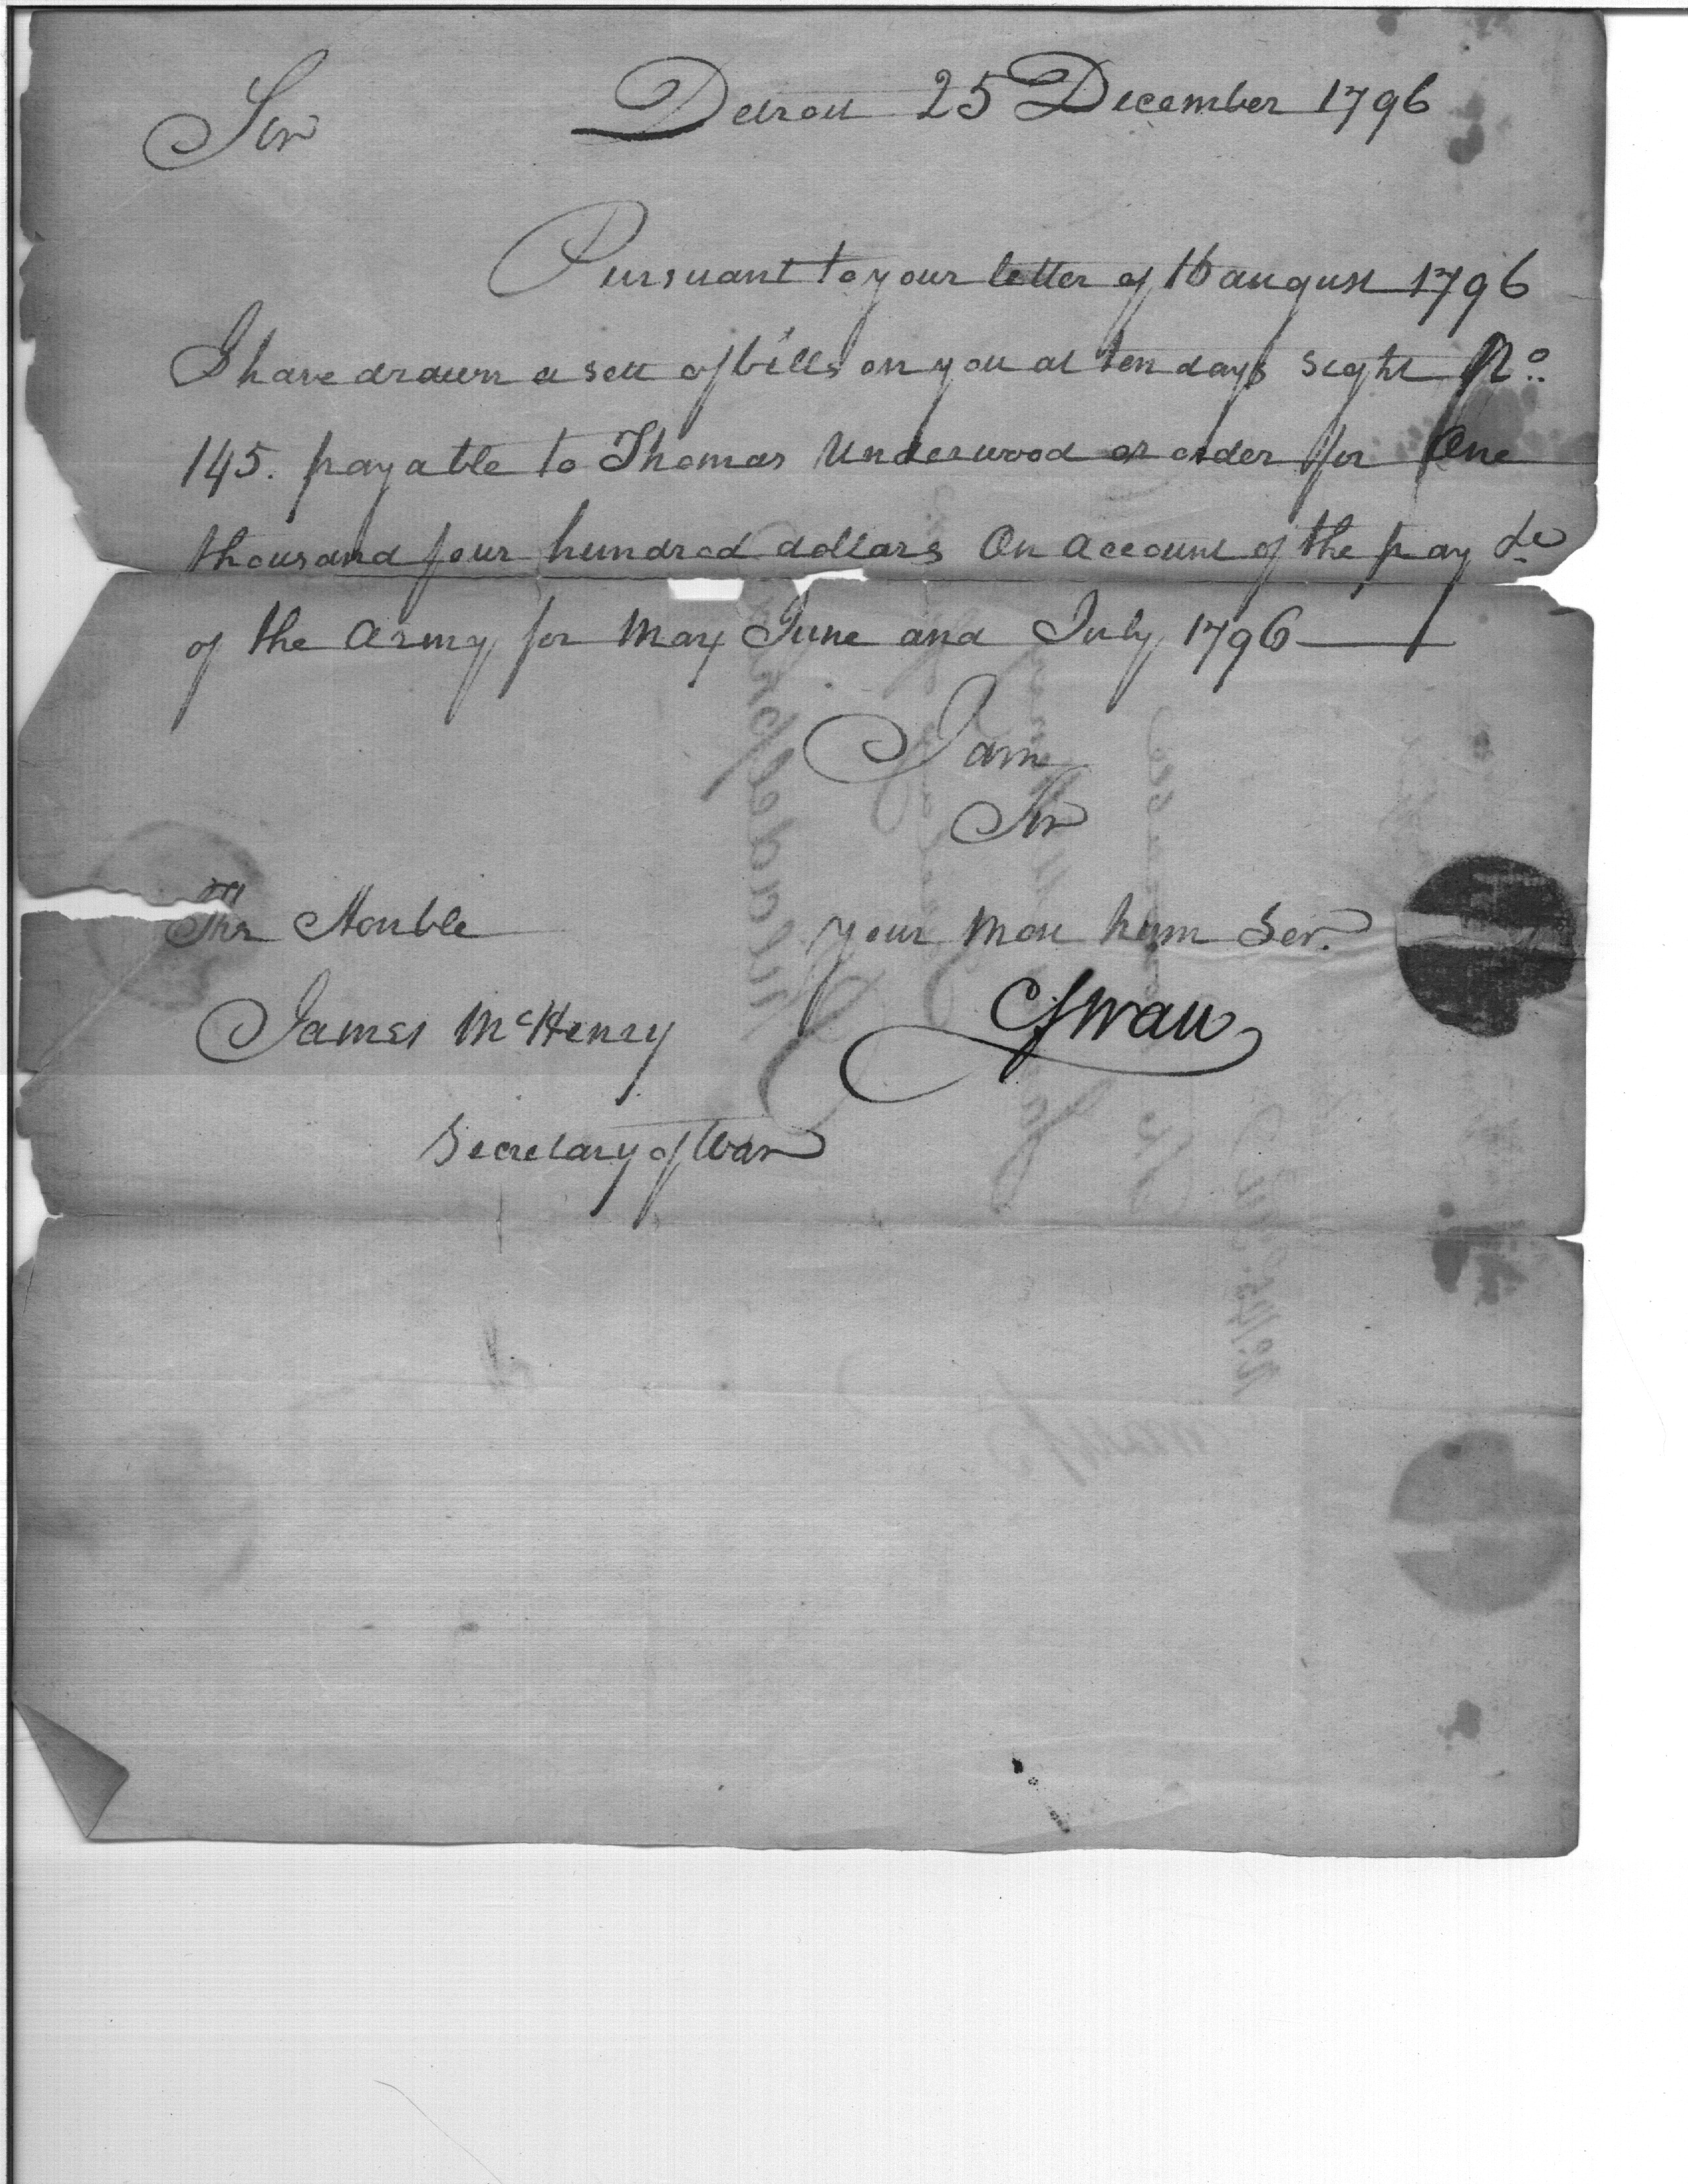 Detroit 25 December 1796
Sir
Pursuant to your letter of 16 august 1796
I have drawn a sett of bills on you at ten days sight No.
145. payable to Thomas Underwood or order for One
thousand four hundred dollars On account of the pay &c
of the army for May June and July 1796
I am
Sir
The Honble
your most hum Ser.
James McHenry
CSwan
Secretary of War
Philadelphia
No. 145